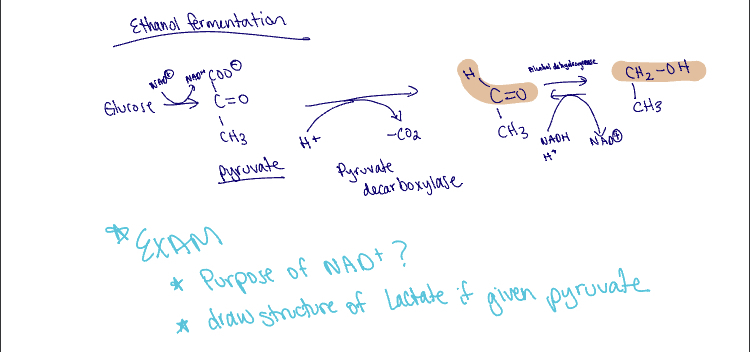 Ethanol fermentation
Glucose
NAD⊕
NADH
COO⊖
C=O
CH3
pyruvate
H+
-CO2
Pyruvate
decarboxylase
H
C=O
CH3
Alcohol dehydrogenase
NADH
H+
NAD⊕
CH2-OH
CH3
* EXAM
* Purpose of NAD+?
* draw structure of Lactate if given pyruvate